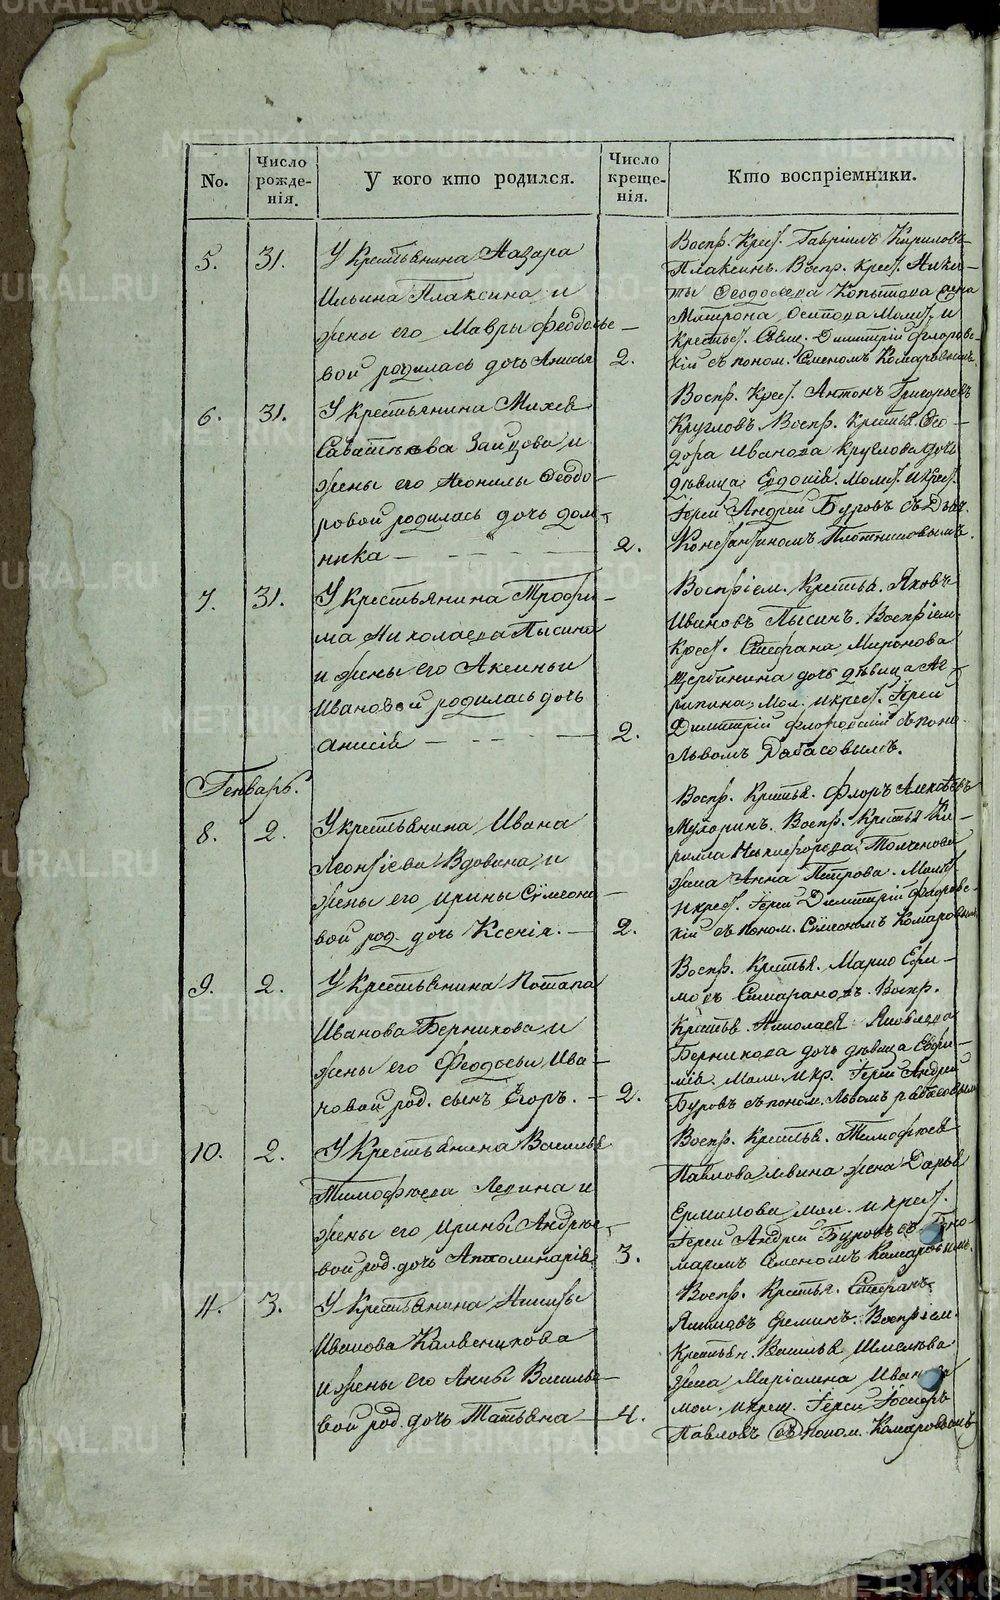 No.
Число рожде-нія.
У кого кто родился.
Число креще-нія.
Кто воспріемники.
5. 31.
У Крестьянина Назара
Ильина Плаксина и
жены его Мавры Феодосье-
вой родилась дочь Анисья
2.
Воспр. Крест. Гавріилъ Кириловъ
Плаксинъ. Воспр. Крест. Ники-
ты Феодосеева жена
Матрона Осипова Молит. и
Крестьб. Свящ. Димитрій Флоровс-
кій съ поном. Симеономъ Комаровымъ.
6. 31.
У Крестьянина Михея
Саватѣева Зайцова и
жены его Неонилы Феодо-
ровой родилась дочь Дом-
ника
2.
Воспр. Крест. Антонъ Григорьевъ
Кругловъ. Воспр. Крестья. Фео-
дора Иванова Круглова дочь
дѣвица Евдокія. Молит. и крест.
Іерей Андрей Буровъ съ Дьяч.
Константиномъ Плотниковымъ.
7. 31.
У Крестьянина Трофи-
ма Николаева Пысина
и жены его Аксиньи
Ивановой родилась дочь
Анисія
2.
Воспріем. Крестья. Яковъ
Ивановъ Пысинъ. Воспріем.
Крест. Стефана Миронова
Щербинина дочь дѣвица Аг-
рипина, Мол. и крест. Іерей
Димитрій Флоровскій съ поно.
Львомъ Рабасовымъ.
Генварь.
8. 2.
У крестьянина Ивана
Леонтіева Вдовина и
жены его Ирины Сѵмеоно-
вой род. дочь Ксенія.
2.
Воспр. Крестья. Флоръ Алексѣевъ
Мухоринъ. Воспр. Крестья Ки-
рилла Никифорова Толченова
жена Анна Петрова. Молит
и крест. Іерей Димитрій Флоровс-
кій съ поном. Сѵмеономъ Комаровымъ
9. 2.
У Крестьянина Потапа
Иванова Берникова и
жены его Феодосьи Ива-
новой род. сынъ Егоръ.
2.
Воспр. Крестья. Марко Ефи-
мовъ Воспр.
Крестья. Николая Яковлева
Берникова дочь дѣвица Евфи-
мія. Моли. и кр. Іерей Андрей
Буровъ съ поном. Львомъ Рабасовымъ
10. 2.
У Крестьянина Василья
Тимофеева Левина и
жены его Ирины Андрее-
вой род. дочь Апполинарія
3.
Воспр. Крестья. Тимофея
Павлова Левина жена Дарья
Ермилова мол. и крест.
Іерей Андрей Буровъ съ Поно-
маремъ Семеномъ Комаровымъ.
11. 3.
У Крестьянина Никиты
Иванова
и жены его Анны Василье-
вой род. дочь Татьяна
4.
Воспр. Крестья. Стефанъ
Акимовъ Фёминъ. Воспріем.
Крестьян. Василья Шмелева
жена Маріамна Иванова
мол. и крещ. Іерей Іосифъ
Павловъ съ поном. Комаровымъ
METRIKI.GASO-URAL.RU